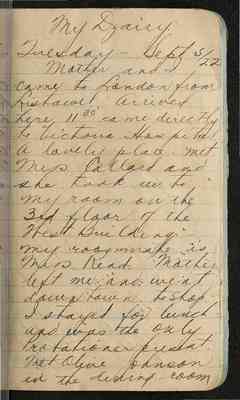 My Diairy
Tuesday - Sept 5/22
Mother and I
came to London from
Arrived
here 11 00 came directly
to Victoria Hospital
A lovelie place met
Miss Callard and
she took us to
my room on the
3rd floor of the
West Building
my roommate is
Miss Read. Mother
left me and went
down town to shop
I stayed for lunch
and was the only
Probationer present
Met Olive Johnson
in the dining room